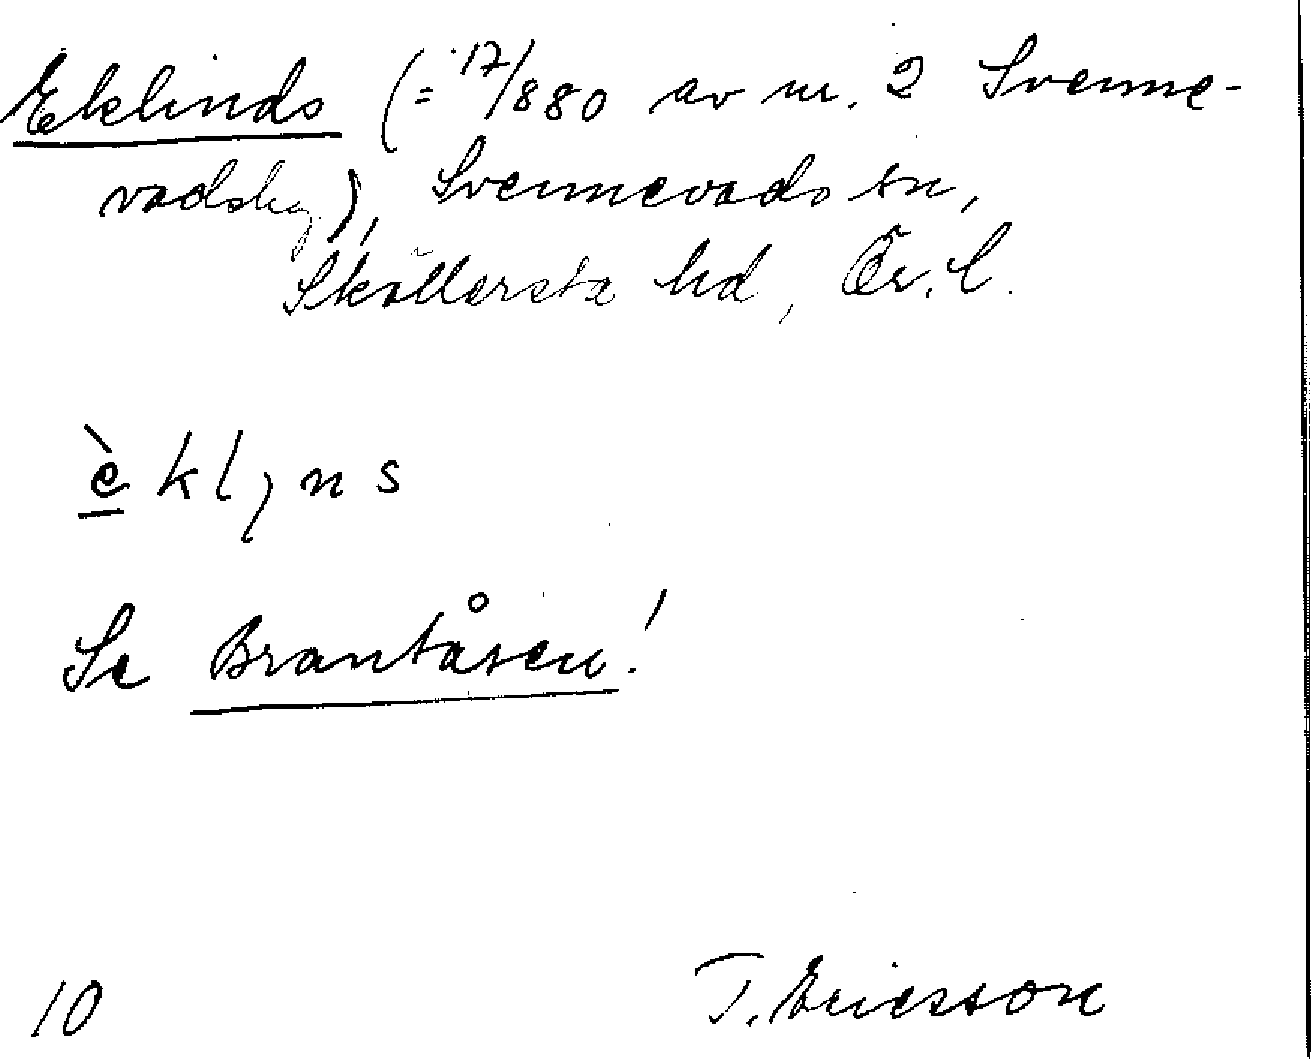 Eklinds (= 17/880 av nr. 2 Svenne-
vadsby), Svennevads sn,
Sköllersta hd, Ör. l.
è k l ı n s
Se Brantåsen!
10 T. Ericsson